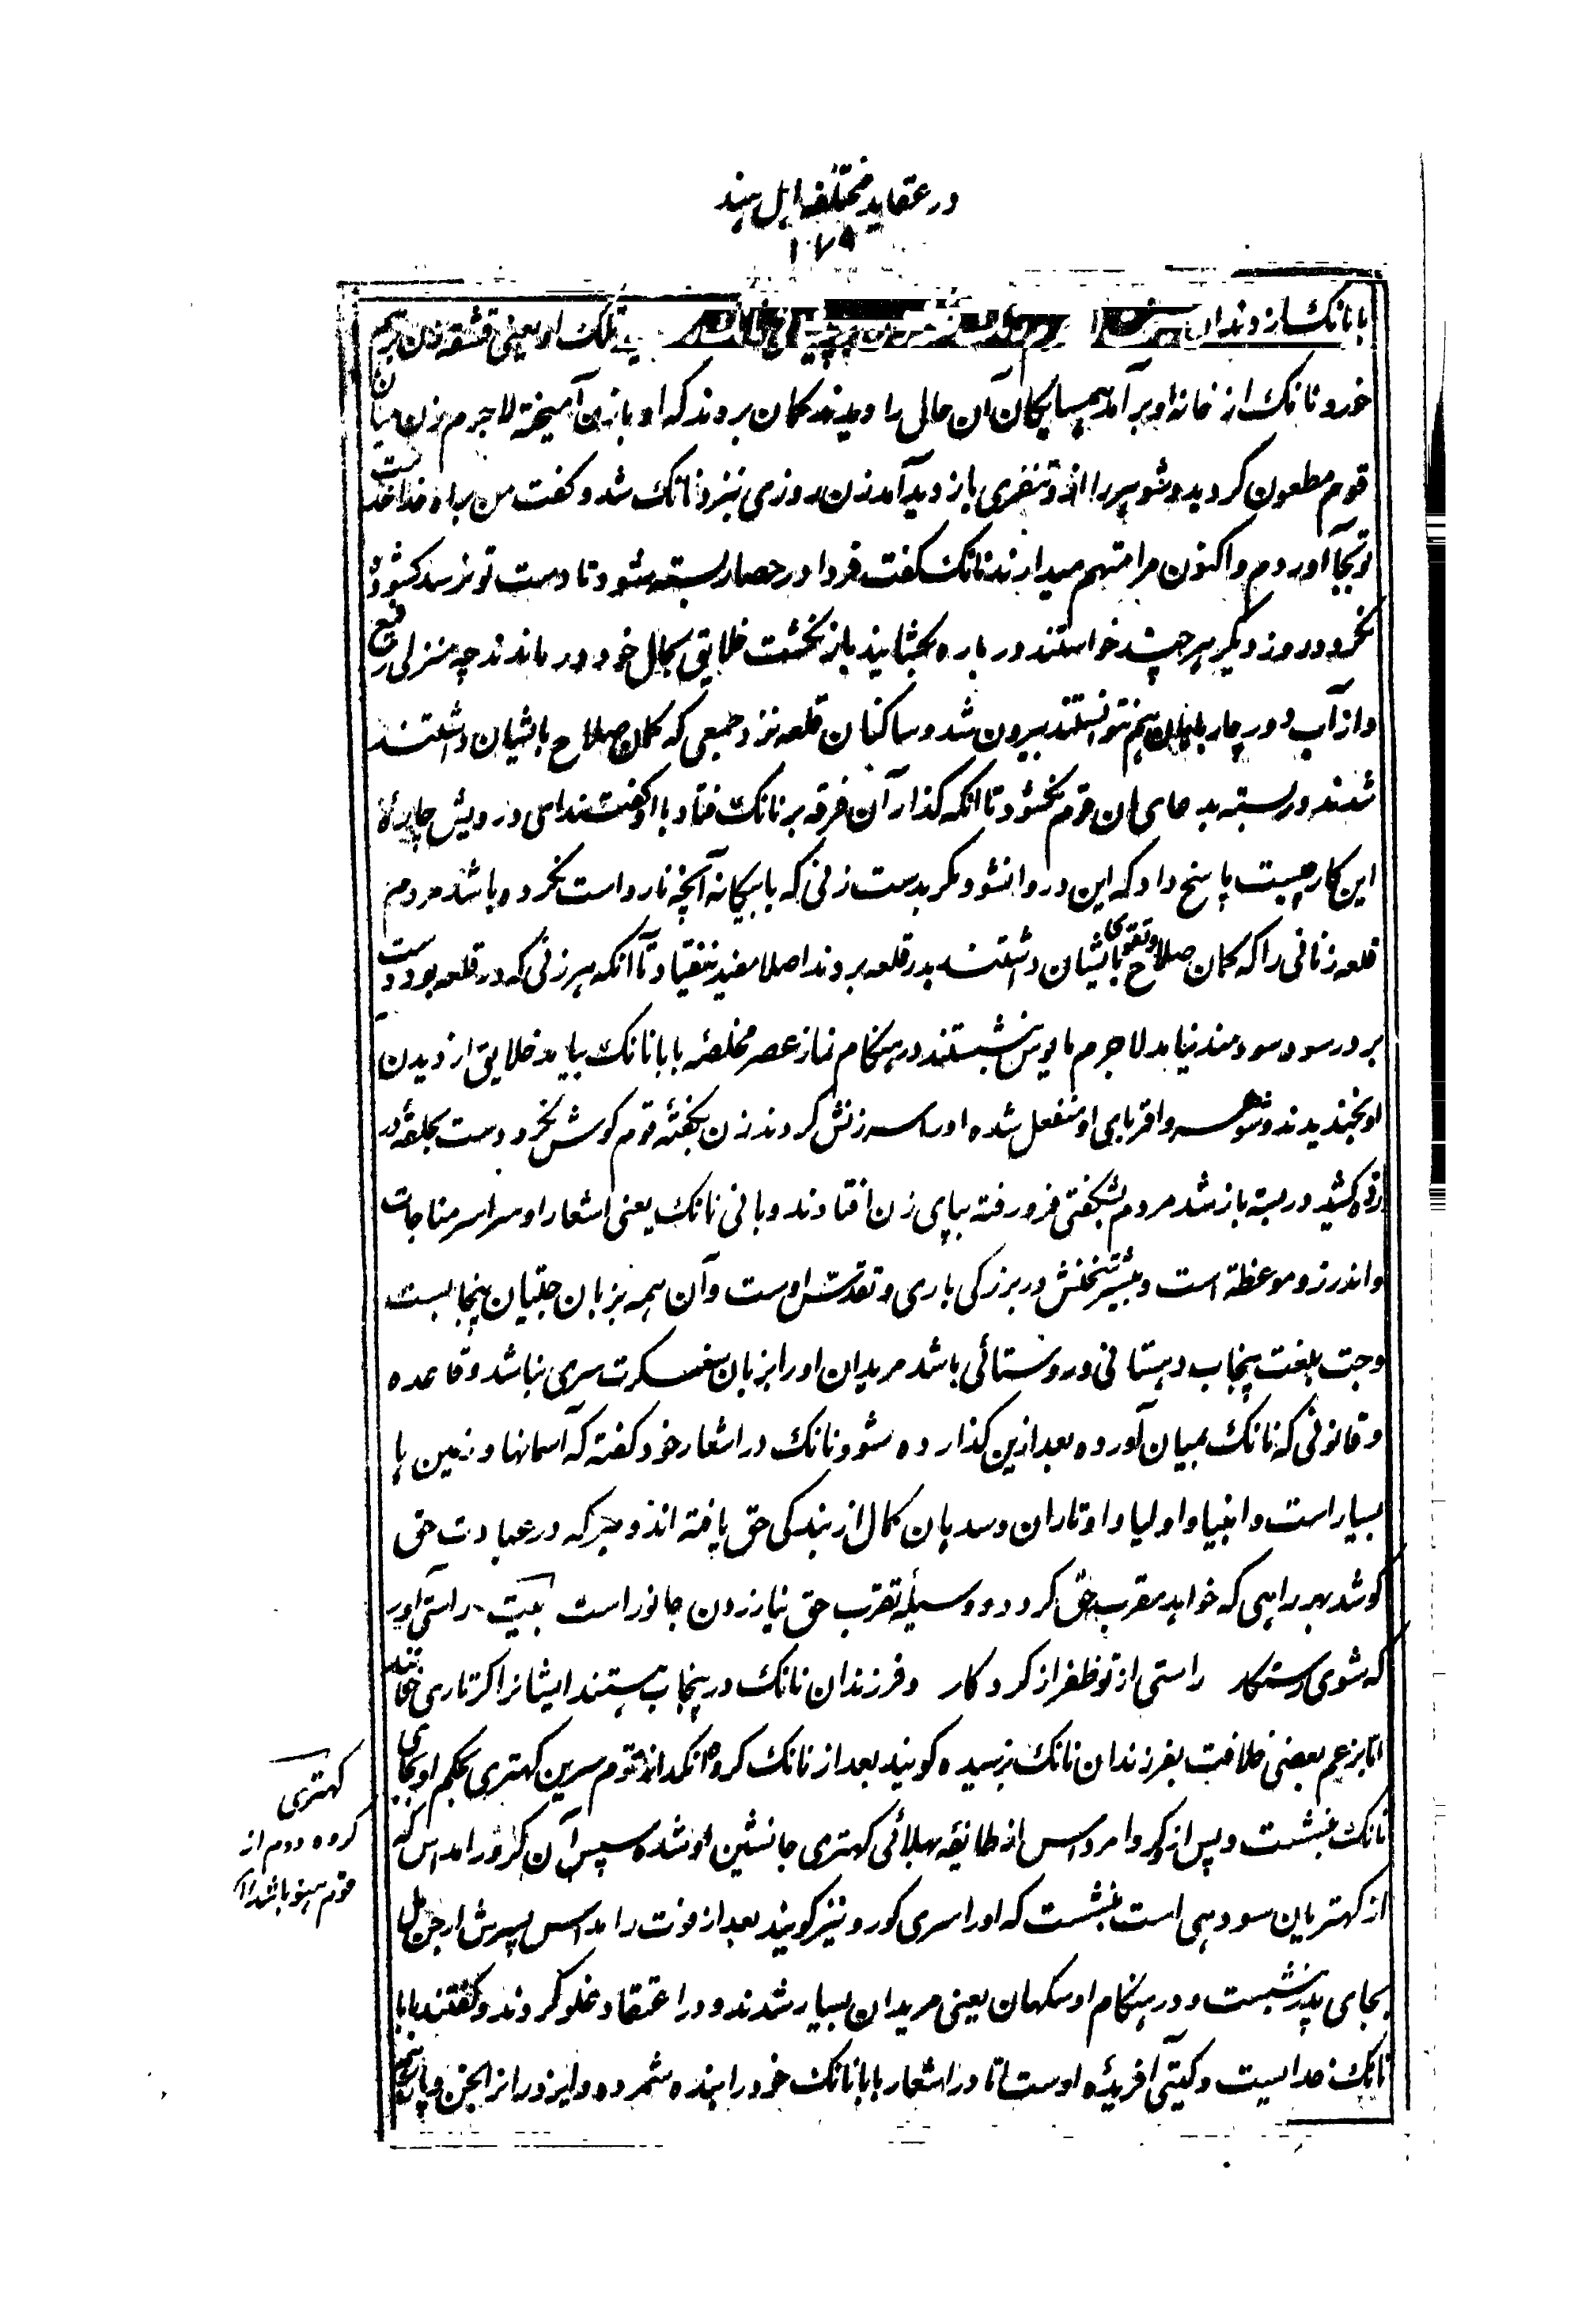 در عقاید مختلفه اهل هند
۱۷۹
با نانک تلک او یعنی قشقه زن بهم
خورد و نانک از خانه او برآمد همسایکان آن حال را دیدند کمان بردند که او با زن آمیخته لاجرم زن میان
قوم مطعون کردید و شوهر را ازو تنفری باز دید آمد زن روزی نزد نانک شد و کفت من براه خدا خدمت
تو بجا آوردم و اکنون مرا متهم میدارند نانک کفت فردا در حصار بسته شود تا دست تو نرسد کشوده
نکردد روز دیکر هر چند خواستند در باره بکشایند باز نکشت خلایق بحال خود در ماندند چه منزلی رفیع
و از آب دور چارپایان هم نتوانستند بیرون شد و ساکنان قلعه نزد جمعی که کمان صلاح بایشان داشتند
شدند در بسته بدعای آن قوم نکشود تا انکه کذار آن فرقه بر نانک فتاد با او کفتند ای درویش چاره
این کار چیست پاسخ داد که این در وا نشود مکر بدست زنی که با بیکانه آنچه نارواست نکرده باشد مردم
قلعه زنانی را که کمان صلاح و تقوی بایشان داشتند بدر قلعه بردند اصلا مفید نیفتاد تا آنکه هر زنی که در قلعه بود دست
بر در سود سودمند نیامد لاجرم مایوس نشستند در هنکام نماز عصر مخلصه بابا نانک بیامد خلایق از دیدن
او بخندیدند و شوهر و اقربای او منفعل شده او را سرزنش کردند زن بکفته قوم کوش نکرد دست بحلقه در
زده کشید در بسته باز شد مردم بشکفتی فرو رفته بپای زن افتادند و بانی نانک یعنی اشعار او سراسر مناجات
و اندرز و موعظه است و بیشتر سخنش در بزرکی باری و تقدس اوست و آن همه بزبان جتیان پنجابست
و جت بلغت پنجاب دهقانی و روستائی باشد مریدان او را بزبان سنسکرت سری نباشد و قاعده
و قانونی که نانک بمیان آورده بعد ازین کذارده شود نانک در اشعار خود کفته که آسمانها و زمین ها
بسیار است و انبیا و اولیا و اوتاران و سدهان کمال از بندکی حق یافته اند و هر که در عبادت حق
کوشد بهر راهی که خواهد مقرب حق کردد و وسیله تقرب حق نیازردن جانور است بیت راستی آور
که شوی رستکار راستی از تو ظفر از کردکار و فرزندان نانک در پنجاب هستند ایشانرا کرتاری خوانند
اما بزعم بعضی خلافت بفرزندان نانک نرسیده کویند بعد از نانک کرو انکد از قوم سرین کهتری بحکم او بجای
نانک بنشست و پس از کرو امرداس از طایفه بهلائی کهتری جانشین او شده سپس آن کرو رامداس که
از کهتریان سودهی است بنشست که او را سری کورو نیز کویند بعد از فوت رامداس پسرش ارجن مل
بجای پدر نشست و در هنکام او سکهان یعنی مریدان بسیار شدند و در اعتقاد غلو کردند و کفتند بابا
نانک خداست و کیتی آفریده اوست اما در اشعار بابا نانک خود را بنده شمرده و ایزد را نرنجن و پاربرهم
کهتری
کروه دوم از
قوم هنود باشد